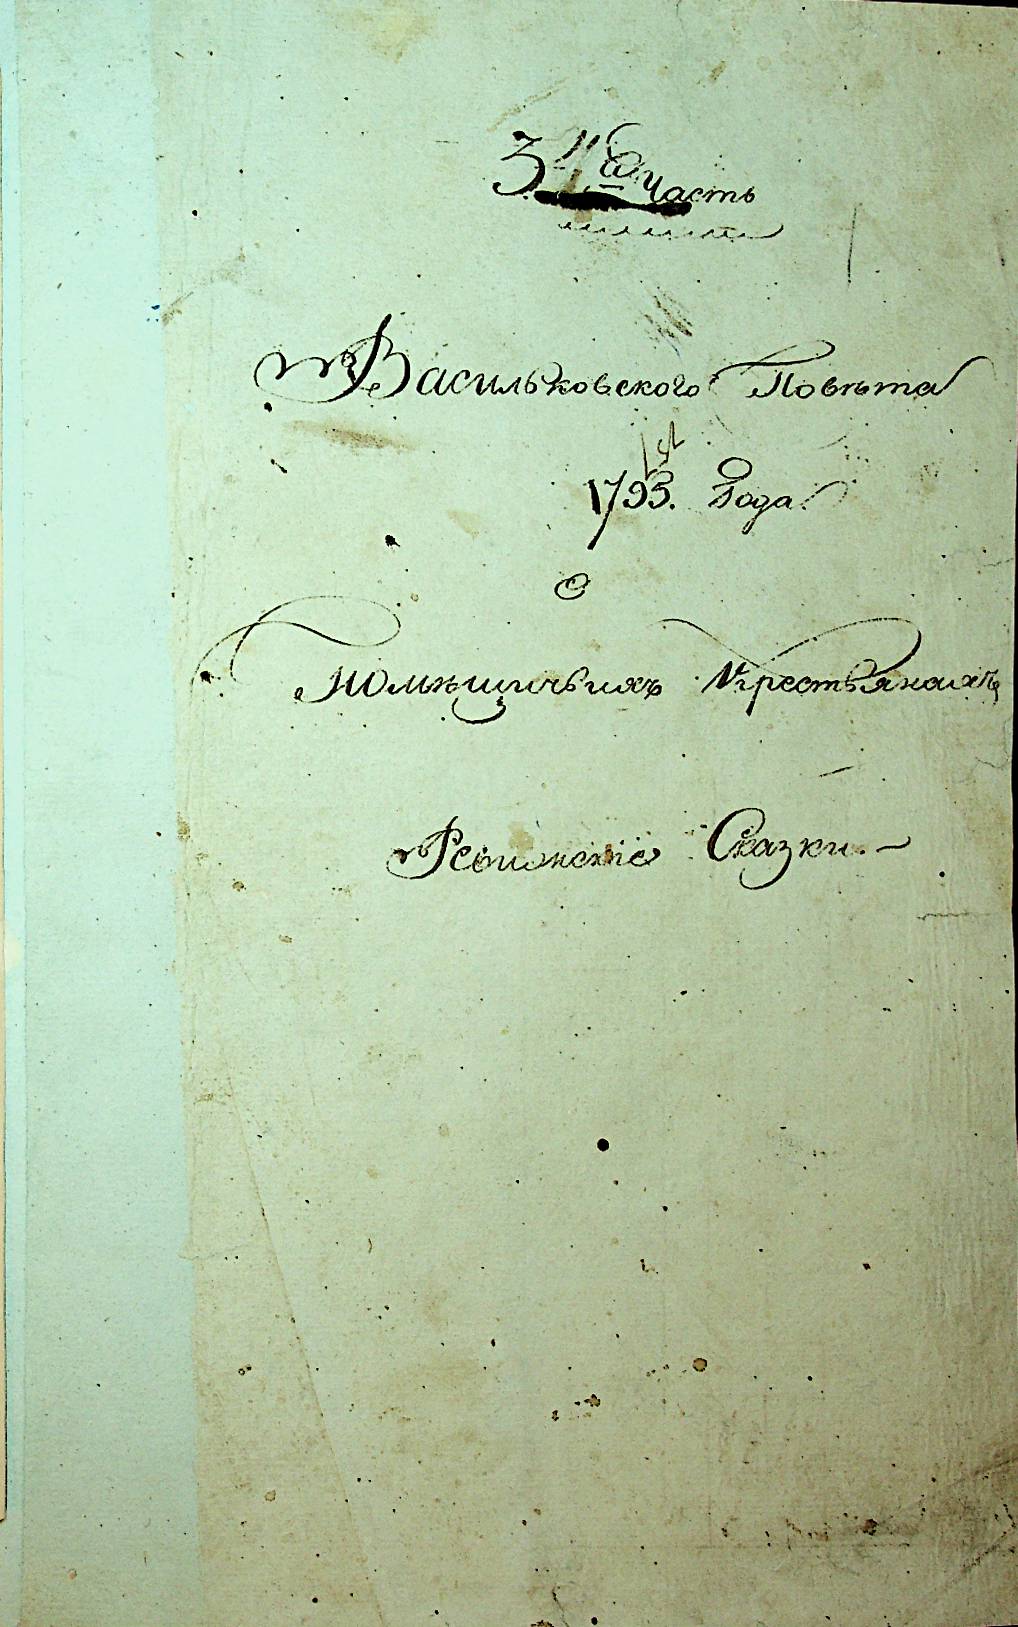 3я Часть
Васильковского Повѣта
1795. Года
О
Помѣщичьихъ Крестьянахъ
Ревижские Сказки.